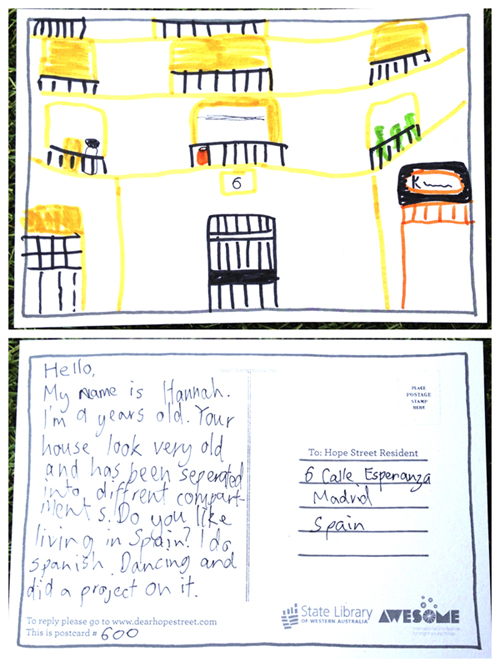 6
K
Hello,
My name is Hannah.
I'm 9 years old. Your
house look very old
and has been seperated
into diffrent compart-
ments. Do you like
living in Spain? I do
spanish Dancing and
did a project on it.
PLACE
POSTAGE
STAMP
HERE
To: Hope Street Resident
6 Calle Esperanza
Madrid
Spain
To reply please go to www.dearhopestreet.com
This is postcard # 600
State Library
OF WESTERN AUSTRALIA
AWESOME